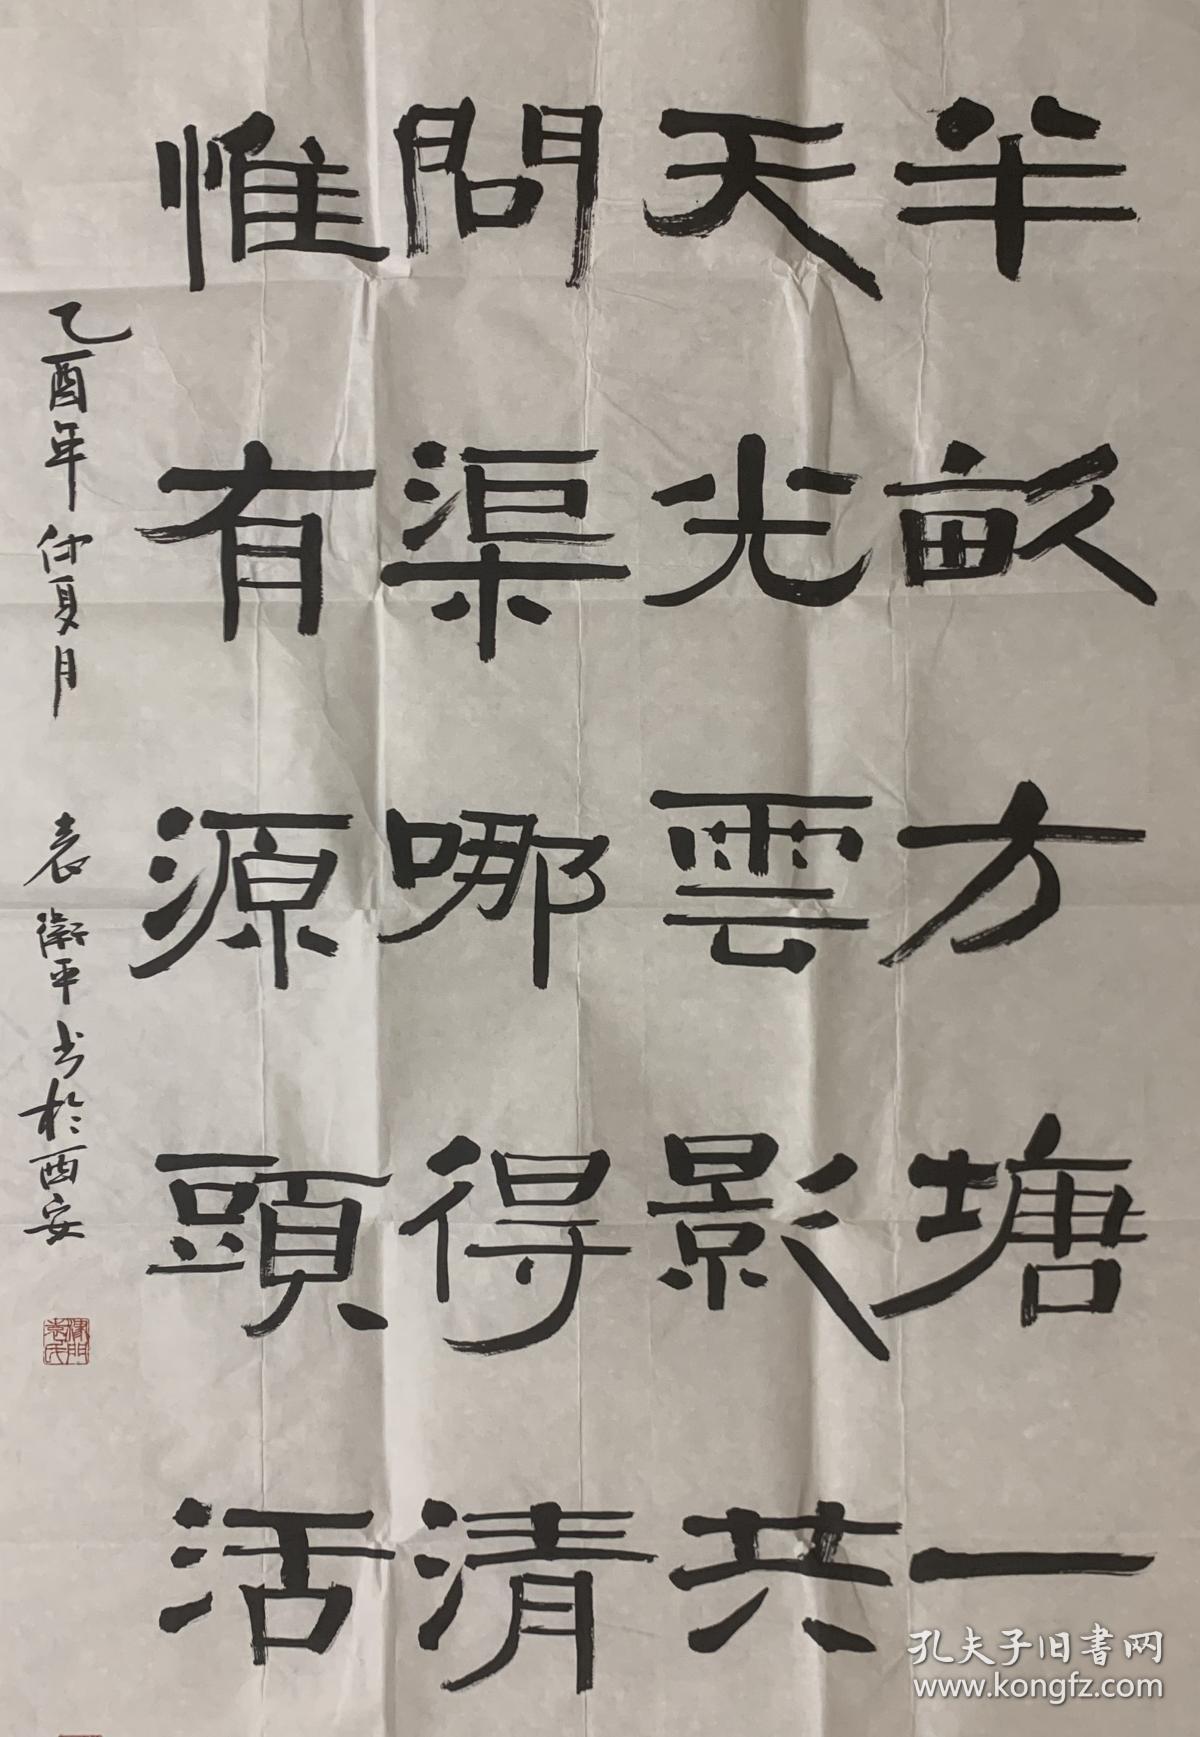 半畝方塘一
天光雲影共
問渠哪得清
惟有源頭活
乙酉年仲夏月 袁衛平书於西安
孔夫子旧書网
www.kongfz.com